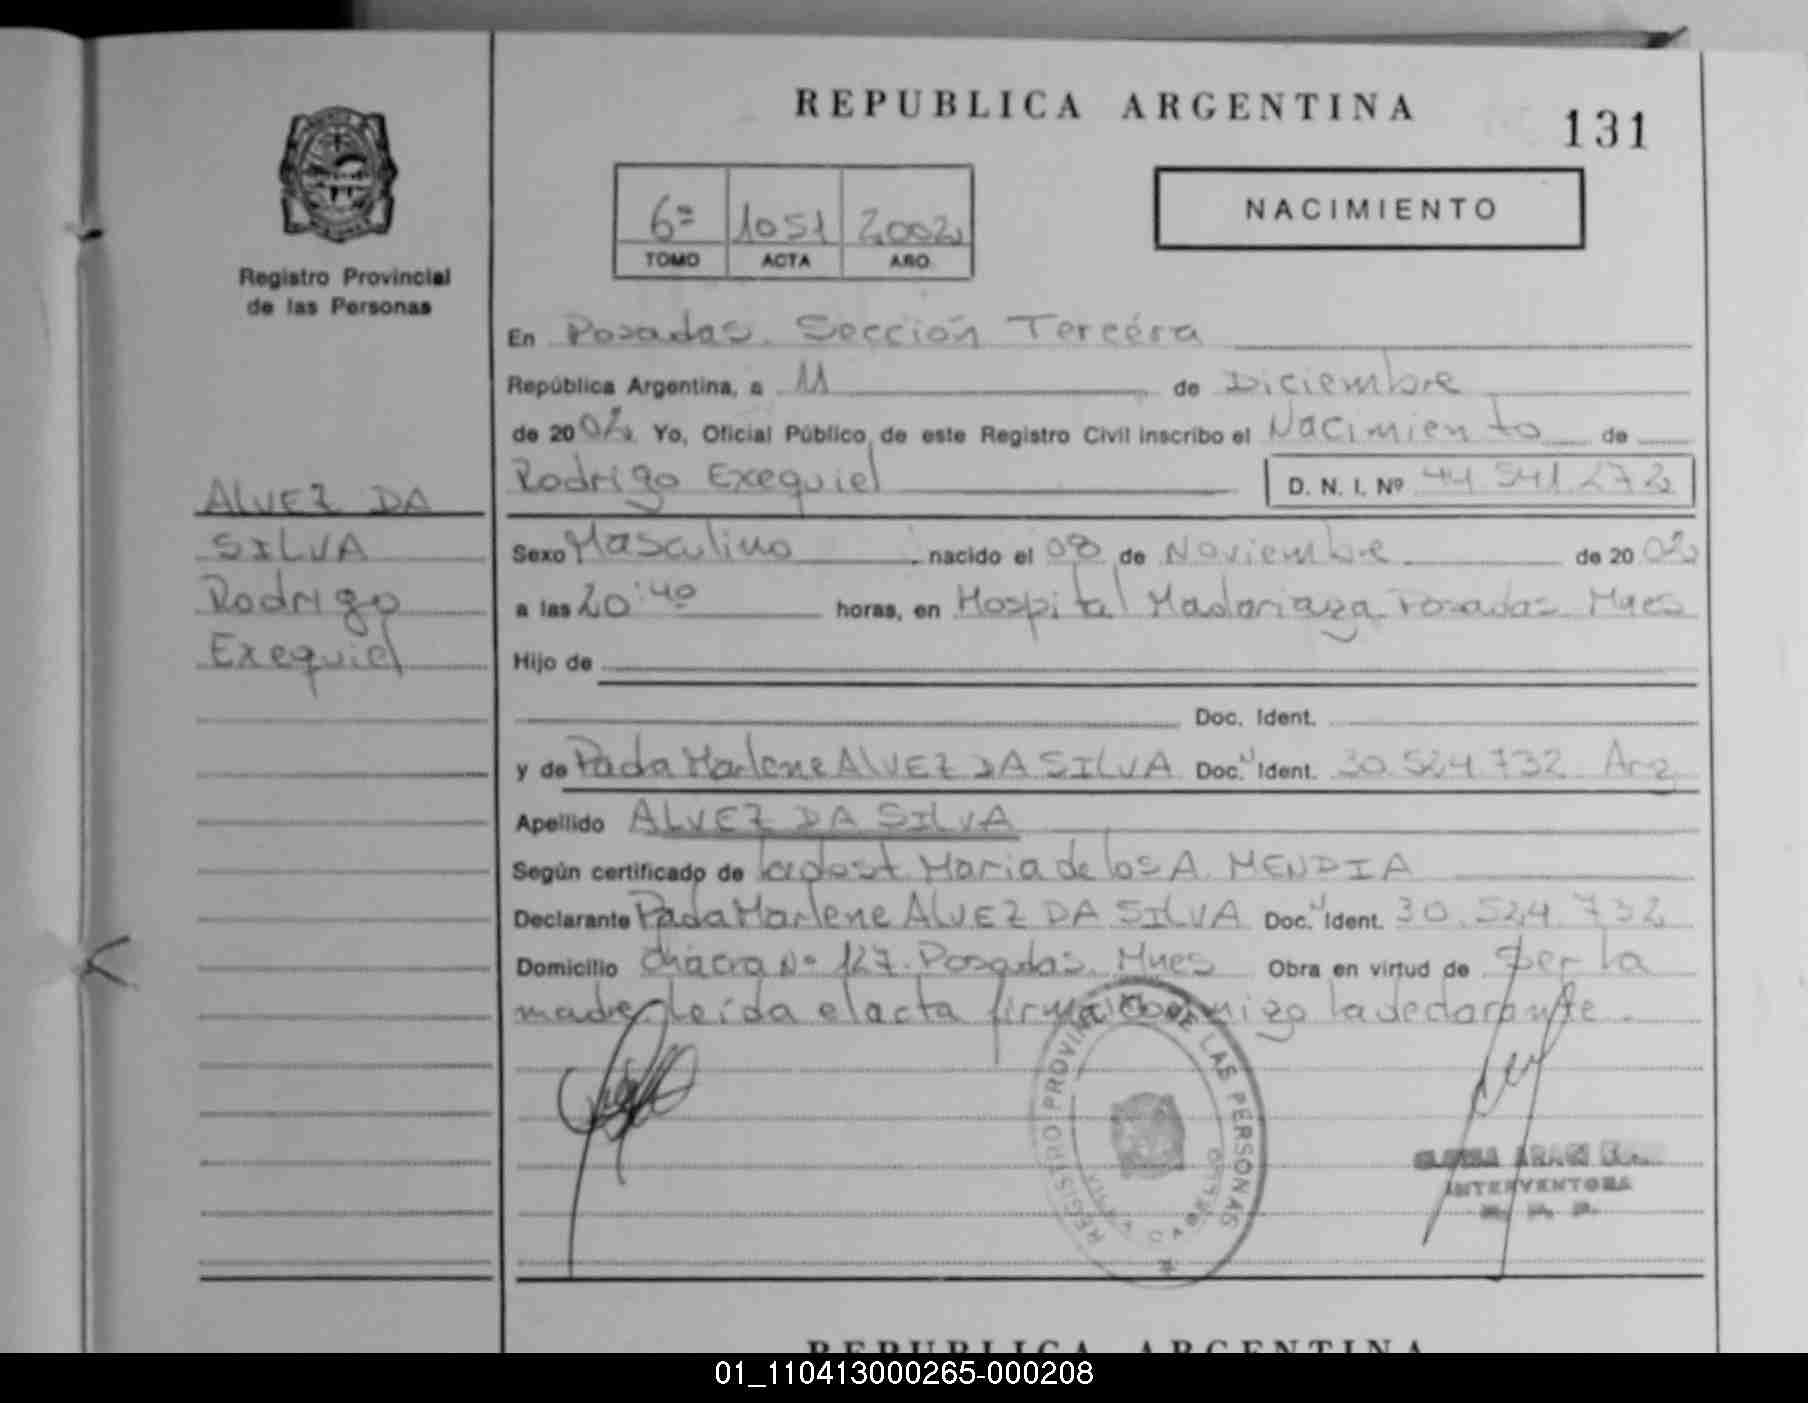 REPUBLICA ARGENTINA
131
NACIMIENTO
6º 1051 2002
TOMO ACTA AÑO
Registro Provincial
de las Personas
En Posadas. Sección Tercera
República Argentina, a 11 de Diciembre
de 2002 Yo, Oficial Público de este Registro Civil inscribo el Nacimiento de
Rodrigo Exequiel D. N. I. Nº 44 541 272
ALVEZ DA
SILVA
Rodrigo
Exequiel
Sexo Masculino nacido el 08 de Noviembre de 2002
a las 20:40 horas, en Hospital Madariaga Posadas Mnes
Hijo de
Doc. Ident.
y de Marlene ALVEZ DA SILVA Doc. Ident. 30.524.732 Arg
Apellido ALVEZ DA SILVA
Según certificado de la obst Maria de los A. MENDIA
Declarante Marlene ALVEZ DA SILVA Doc. Ident. 30.524.732
Domicilio Chacra Nº 127. Posadas. Mnes Obra en virtud de Ser la
madre. Leída el acta firma conmigo la declarante.
REGISTRO PROVINCIAL DE LAS PERSONAS
VILLA CABELLO
INTERVENTORA
R. P. P.
REPUBLICA ARGENTINA
01_110413000265-000208